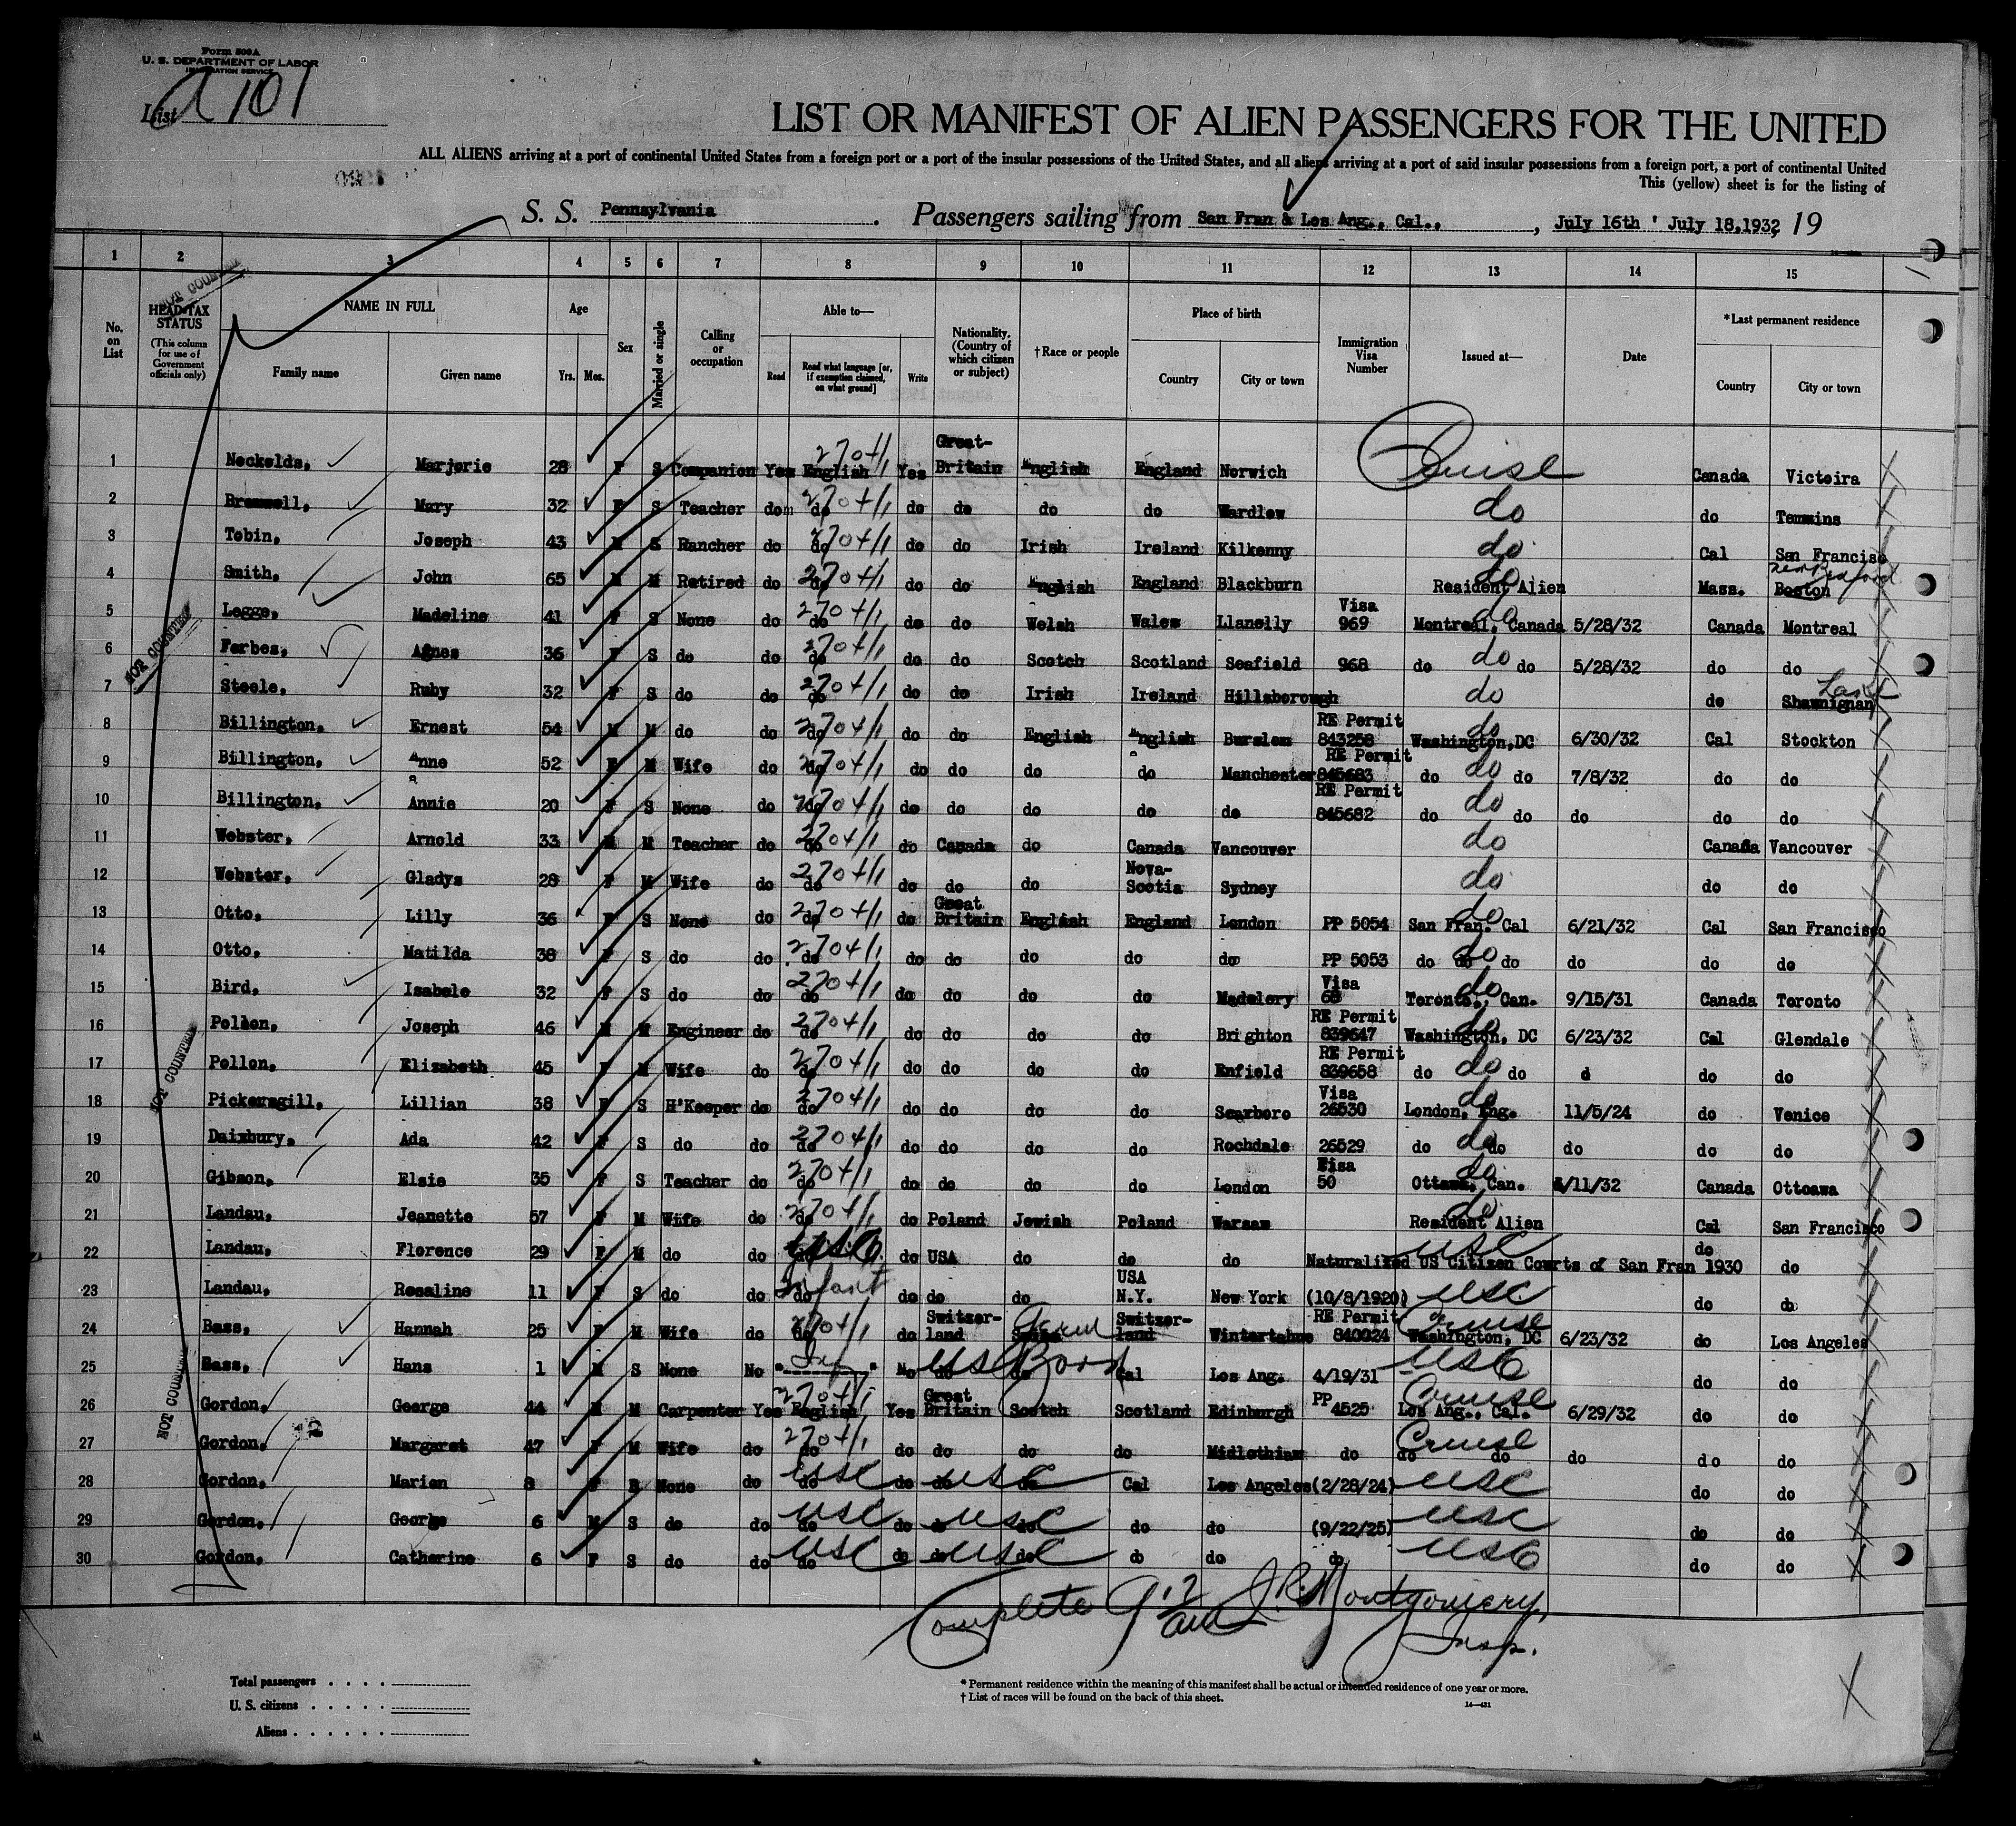 Form 500A
U. S. DEPARTMENT OF LABOR
IMMIGRATION SERVICE
List A 101
LIST OR MANIFEST OF ALIEN PASSENGERS FOR THE UNITED
ALL ALIENS arriving at a port of continental United States from a foreign port or a port of the insular possessions of the United States, and all aliens arriving at a port of said insular possessions from a foreign port, a port of continental United
This (yellow) sheet is for the listing of
S. S. Pennsylvania. Passengers sailing from San Fran & Los Ang., Cal., , July 16th ' July 18,1932, 19
1 2 3 4 5 6 7 8 9 10 11 12 13 14 15
No. on List
HEAD-TAX STATUS
(This column for use of Government officials only)
NOT COUNTED
NAME IN FULL
Family name Given name
Age Yrs. Mos.
Sex
Married or single
Calling or occupation
Able to—
Read Read what language [or, if exemption claimed, on what ground] Write
Nationality. (Country of which citizen or subject)
†Race or people
Place of birth
Country City or town
Immigration Visa Number
Issued at—
Date
*Last permanent residence
Country City or town
1 Neckelds, Marjorie 28 F S Companion Yes English 270 +/1 Yes Great-Britain English England Norwich Cruise Canada Victoira
2 Brammell, Mary 32 F S Teacher do do 270 +/1 do do do do Wardlew do do Temmins
3 Tobin, Joseph 43 M S Rancher do do 270 +/1 do do Irish Ireland Kilkenny do Cal San Francisc
4 Smith, John 65 M M Retired do do 270 +/1 do do English England Blackburn Resident Alien do Mass. Boston New Bedford
5 Legge, Madeline 41 F S None do do 270 +/1 do do Welsh Wales Llanelly Visa 969 Montreal, Canada do 5/28/32 Canada Montreal
6 Forbes, Agnes 36 F S do do do 270 +/1 do do Scotch Scotland Seafield 968 do do do 5/28/32 do do
7 Steele, Ruby 32 F S do do do 270 +/1 do do Irish Ireland Hillsborough do do Shawnigan Lake
8 Billington, Ernest 54 M M do do do 270 +/1 do do English English Burslem RE Permit 843258 Washington,DC do 6/30/32 Cal Stockton
9 Billington, Anne 52 F M Wife do do 270 +/1 do do do do Manchester RE Permit 845683 do do do 7/8/32 do do
10 Billington, Annie 20 F S None do do 270 +/1 do do do do do RE Permit 845682 do do do do do do
11 Webster, Arnold 33 M M Teacher do do 270 +/1 do Canada do Canada Vancouver do Canada Vancouver
12 Webster, Gladys 28 F M Wife do do 270 +/1 do do do Nova-Scotia Sydney do do do
13 Otto, Lilly 36 F S None do do 270 +/1 do Great Britain English England London PP 5054 San Fran. Cal do 6/21/32 Cal San Francisco
14 Otto, Matilda 38 F S do do do 270 +/1 do do do do do PP 5053 do do do do do do
15 Bird, Isabele 32 F S do do do 270 +/1 do do do do Madelery Visa 68 Toronto., Can. do 9/15/31 Canada Toronto
16 Pellen, Joseph 46 M M Engineer do do 270 +/1 do do do do Brighton RE Permit 839647 Washington, DC do 6/23/32 Cal Glendale
17 Pellen, Elizabeth 45 F M Wife do do 270 +/1 do do do do Enfield RE Permit 839658 do do do d do do
18 Pickersgill, Lillian 38 F S H'Keeper do do 270 +/1 do do do do Scarboro Visa 26530 London, Eng. do 11/5/24 do Venice
19 Daixbury, Ada 42 F S do do do 270 +/1 do do do do Rochdale 26529 do do do do do do
20 Gibson, Elsie 35 F S Teacher do do 270 +/1 do do do do London Visa 50 Ottawa, Can. do /11/32 Canada Ottoawa
21 Landau, Jeanette 57 F M Wife do do 270 +/1 do Poland Jewish Poland Warsaw Resident Alien do Cal San Francisco
22 Landau, Florence 29 F M do do do do USA do do do Naturalized US Citizen Courts of San Fran 1930 USC do do
23 Landau, Rosaline 11 F S do do do Infant do do do USA N.Y. New York (10/8/1920) USC do do
24 Bass, Hannah 25 F M Wife do do 270 +/1 do Switzer-land Germ Switzer-land Wintertahne RE Permit 840024 Washington, DC Cruise 6/23/32 do Los Angeles
25 Bass, Hans 1 M S None No "------" Inf No USC Born Cal Los Ang. 4/19/31 USC do do
26 Gordon, George 44 M M Carpenter Yes English 270 +/1 Yes Great Britain Scotch Scotland Edinburgh PP 4525 Los Ang., Cal. Cruise 6/29/32 do do
27 Gordon, Margaret 47 F M Wife do do 270 +/1 do do do do Midlothian do do do Cruise do do do
28 Gordon, Marien 8 F S None do do USC do do USC do Cal Los Angeles (2/28/24) USC do do
29 Gordon, George 6 M S do do do USC do do USC do do do (9/22/25) USC do do
30 Gordon, Catherine 6 F S do do do USC do do USC do do do do USC do do
NOT COUNTED
NOT COUNTED
NOT COUNTED
Complete J.R. Montgomery,
Insp.
Total passengers
U. S. citizens
Aliens
* Permanent residence within the meaning of this manifest shall be actual or intended residence of one year or more.
† List of races will be found on the back of this sheet.
14—431